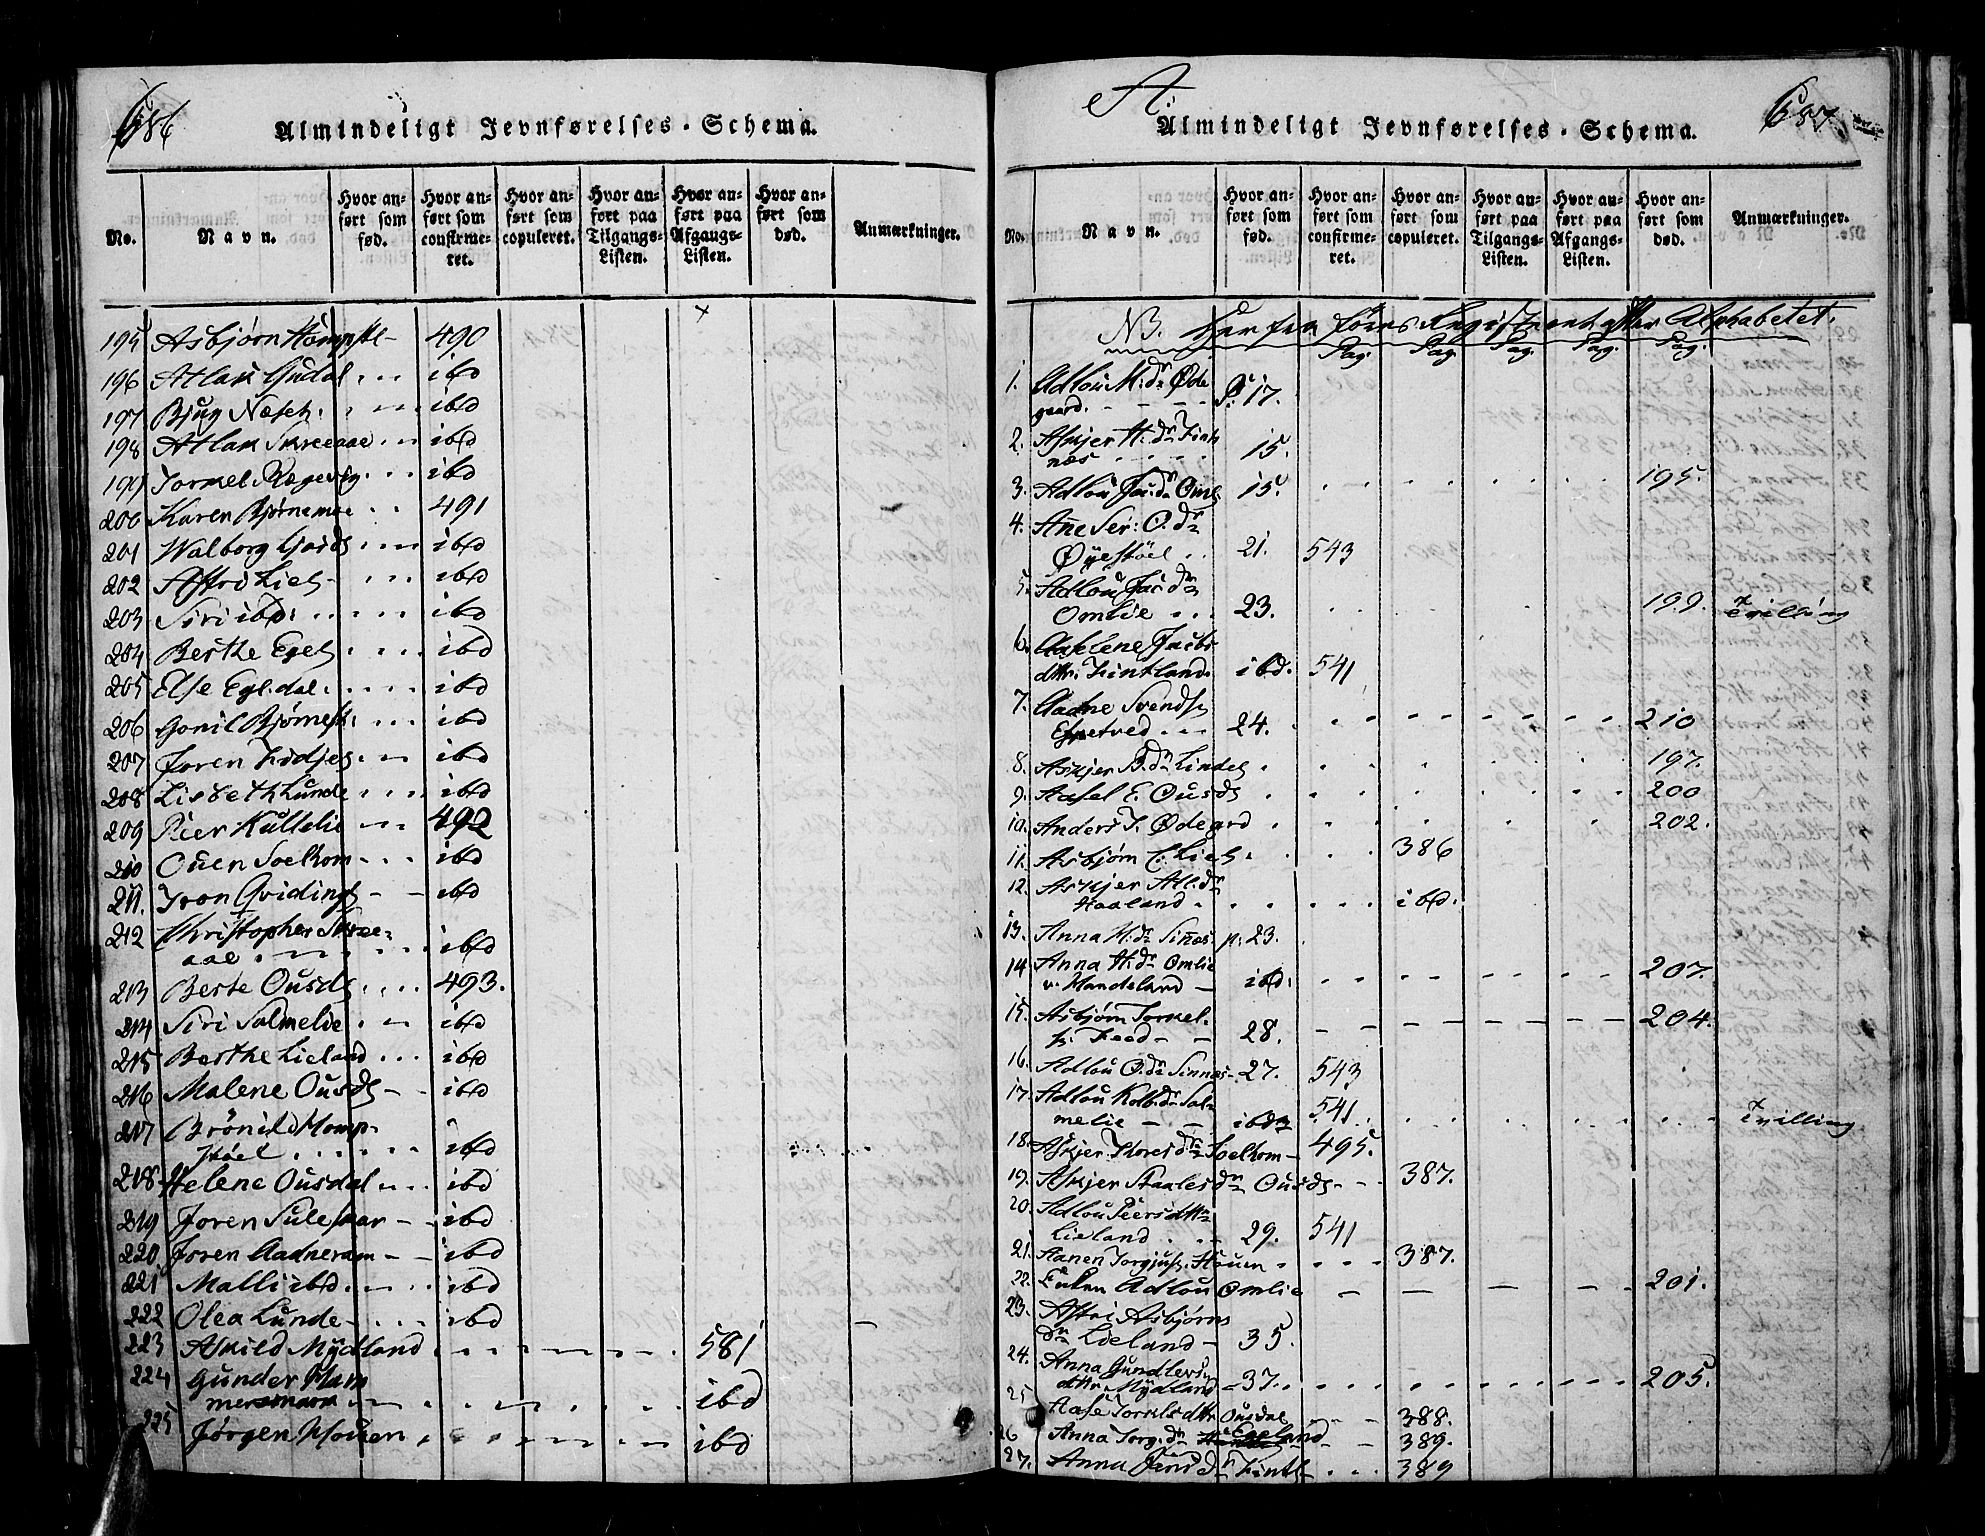 686
Almindeligt Jevnførelses-Schema.
No. Navn. Hvor anført som fød. Hvor anført som confirmeret. Hvor anført som copuleret. Hvor anført paa Tilgangs-Listen. Hvor anført paa Afgangs-Listen. Hvor anført som død. Anmærkninger.
195 Asbjørn - 490
196 Atlak Gudal ibd
197 Bjug Næset ibd
198 Atlak Skreeaae ibd
199 Tormel Rægevig ibd
200 Karen Bjørnemoe 491
201 Walborg ibd
202 Astri Liel ibd
203 Siri ibd: ibd
204 Berthe ibd
205 Else Egl.dal ibd
206 Gonil Bjørnest: ibd
207 Joren ibd
208 Lisbeth Lunde ibd
209 Peer Kultelie 492
210 Ouen Soelhom ibd
211. Tron ibd
212 Christopher Skree=
aae ibd
213 Berte Ousd 493.
214 Siri Salmelie ibd
215 Berthe Lieland ibd
216 Malene Ousd ibd
217 Brönild Homp-
støel ibd
218 Helene Ousdal ibd
219 Joren Suleskar ibd
220 Joren Aadneram ibd
221 Malli ibd. ibd
222 Olea Lunde ibd
223 Askild Mydland 581
224 Gunder Ham
mersmark ibd
225 Jørgen Houen ibd
A.
687
Almindeligt Jevnførelses-Schema.
No. Navn. Hvor anført som fød. Hvor anført som confirmeret. Hvor anført som copuleret. Hvor anført paa Tilgangs-Listen. Hvor anført paa Afgangs-Listen. Hvor anført som død. Anmærkninger.
NB. Her fra føres Registeret efter Alphabetet.
Pag. Pag. Pag. Pag. Pag.
1. Adlou M:dr Øde
gaard. P: 17.
2. Askjer H:dr
næs 15.
3. Adlou Jac:dr Oml 15. 195.
4. Ane Ser: O:dr
Øyestöel 21. 543
5. Adlou Jac:dr
Omlie 23. 199. Tvilling
6. Aaselene Jacobs
dttr. Fintland. ibd. 541
7. Aadne Svends
Espetved 24. 210
8. Askjer B:dr Linde 197.
9. Aasel E. Ousd 200
10. Anders T. Ødegard 202.
11. Asbjørn E. Liel 386
12. Askjer Atl:dr
Haaland. ibd.
13. Anna H:dr Sinnes. p: 23.
14 Anna H:dr Omlie
v. Handeland - ibd. 207.
15. Asbjørn Tormel.
s. Feed - 28. 204.
16. Adlou O:dr Sinnes- 27. 543
17. Adlou Kolb:dr Sal=
melie ibd 541. Tvilling
18. Askjer Thores dr Soelhom - 495.
19. Askjer Staalesdr Ousd 387.
20. Adlou Peersdttr
Lieland 29. 541
21. Aanen Torgjus. Houen 387.
22. Enken Adlou Omlie 201.
23. Astri Asbjørns
dr Lieland - 35.
24. Anna Gundlevs
dttr. Mydland - 37. 205.
25 Aase Tormelsdttr Ousdal 388.
26 Anna Torg:dr Egeland 389.
27. Anna Jens dr Fintl 389